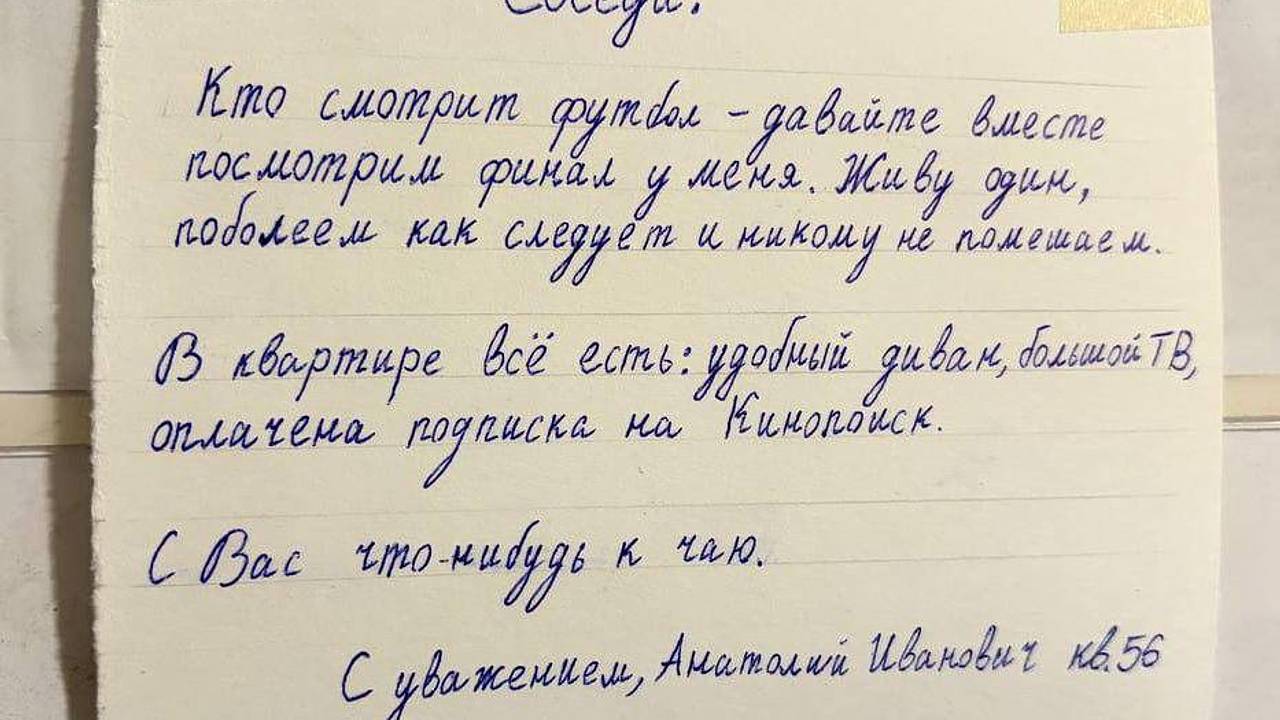 Соседи!
Кто смотрит футбол – давайте вместе
посмотрим финал у меня. Живу один,
поболеем как следует и никому не помешаем.
В квартире всё есть: удобный диван, большой ТВ,
оплачена подписка на Кинопоиск.
С Вас что-нибудь к чаю.
С уважением, Анатолий Иванович кв.56